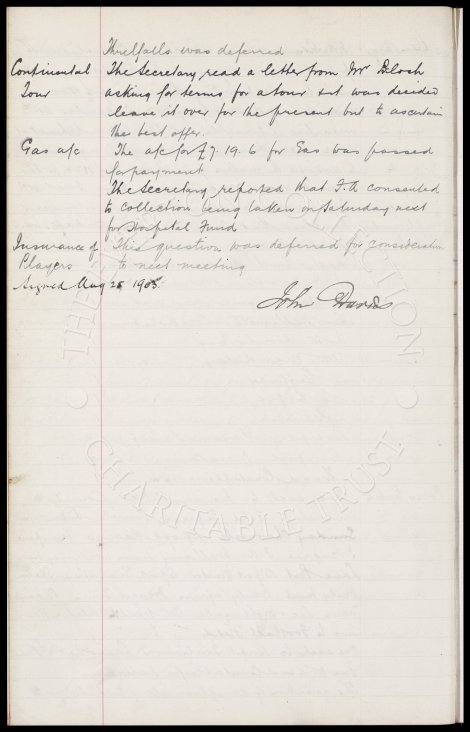 Threlfalls was deferred
Continental The Secretary read a letter from Mr Bloch
Tour asking for terms for a tour & it was decided
leave it over for the present but to ascertain
the best offer.
Gas a/c The a/c for £7. 19. 6 for Gas was passed
for payment
The Secretary reported that F.A consented
to collections being taken on Saturday next
for Hospital Fund
Insurance of This question was deferred for consideration
Players to next meeting
Signed Aug 25 1905
John Davies
THE EVERTON COLLECTION
CHARITABLE TRUST